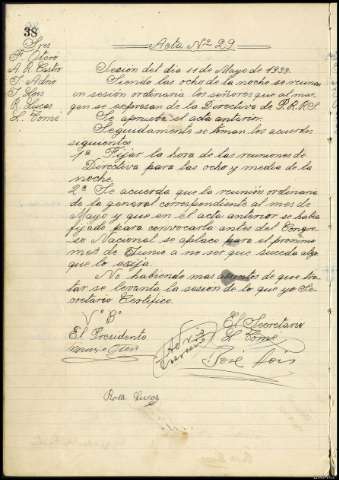 38
Sres
F. Otero
A. R. Castro
J. Adrio
J. Lois
R. Lucas
L. Tomé
Acta Nº 29
Sesión del día 11 de Mayo de 1933.
Siendo las ocho de la noche se reunen
en sesión ordinaria los señores que al mar-
gen se expresan de la Directiva de P.R.R.S.
Se aprueba el acta anterior.
Seguidamente se toman los acuerdos
siguientes
1º Fijar la hora de las reuniones de
Directiva para las ocho y media de la
noche.
2º Se acuerda que la reunión ordinaria
de la general correspondiente al mes de
Mayo y que en el acta anterior se había
fijado para convocarla antes del Congre-
so Nacional se aplace para el próximo
mes de Junio a no ser que suceda algo
que lo exija.
No habiendo mas asuntos de que tra-
tar se levanta la sesión de lo que yo Se-
cretario Certifico.
Vº Bº
El Presidente
El Secretario
L. Tomé
José Lois